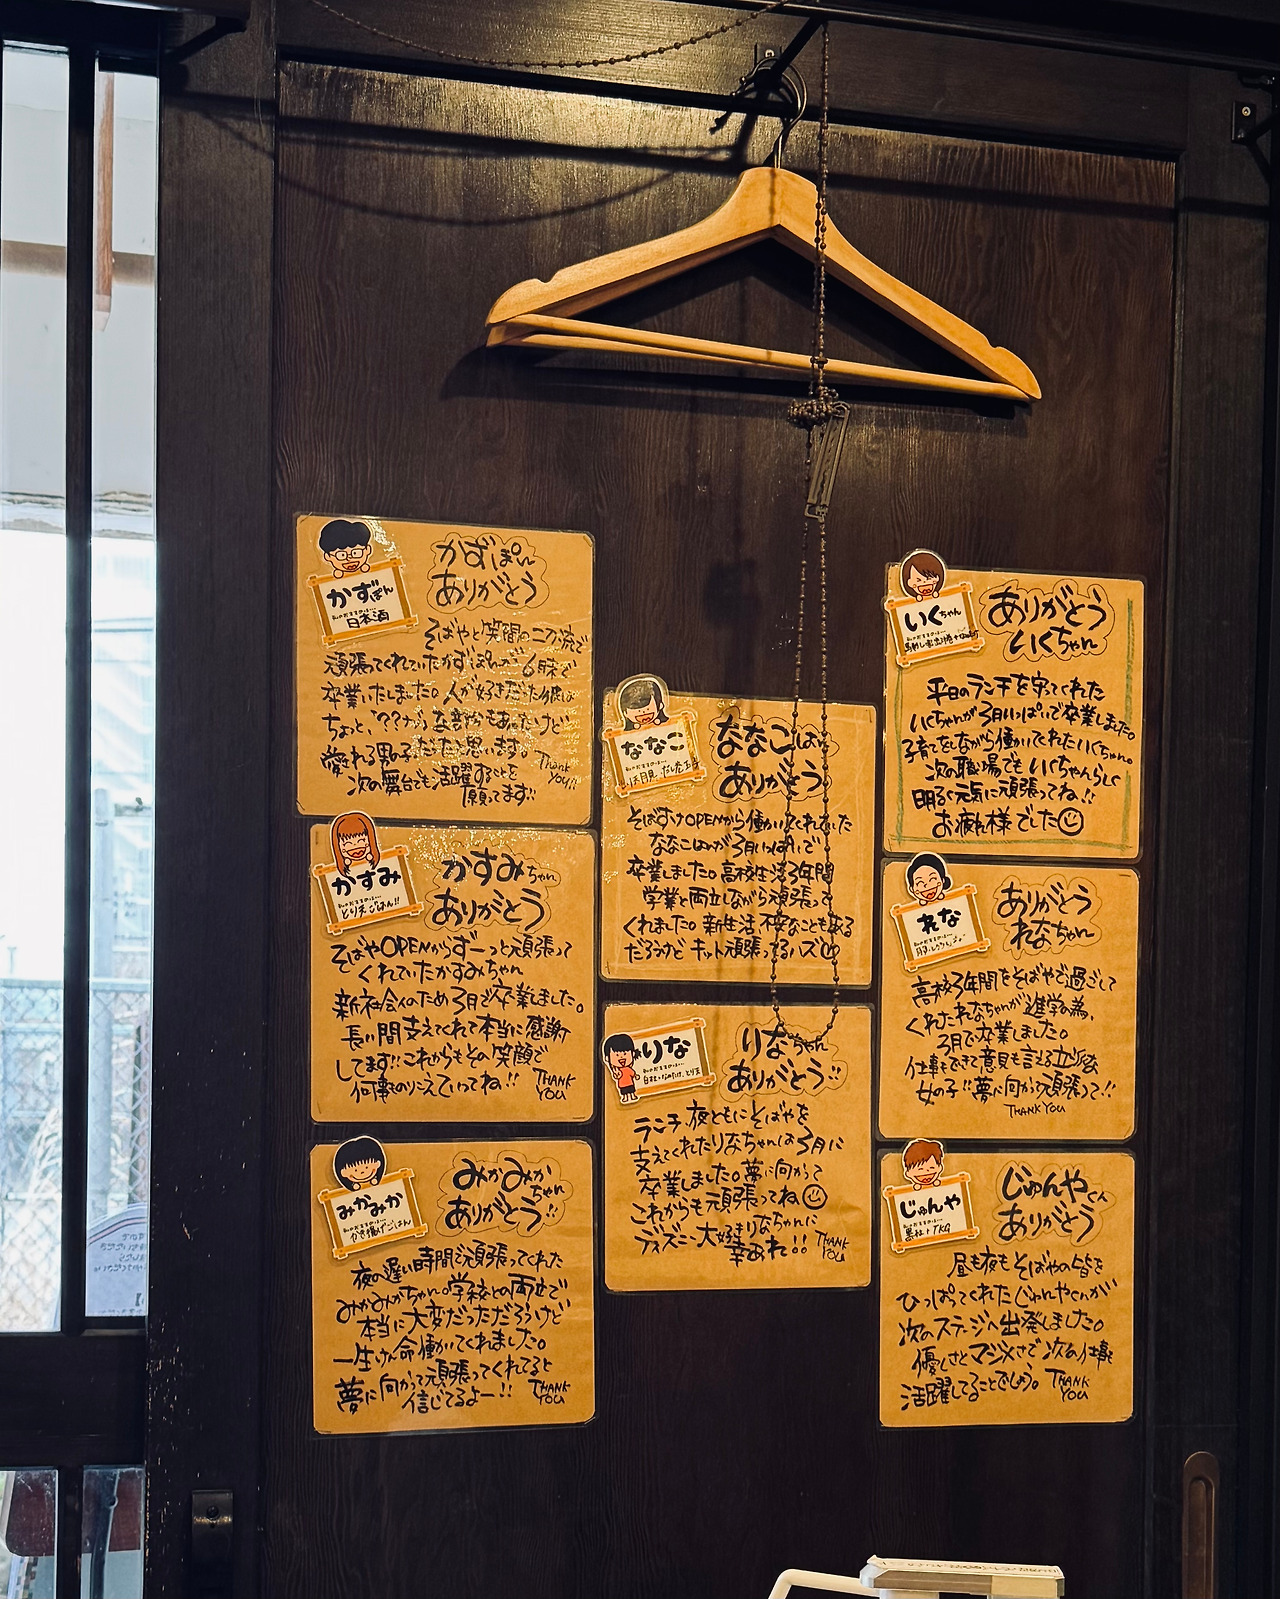 かずぽん
日本酒
かずぽん
ありがとう
そばやと笑間の二刀流で
頑張ってくれていたかずぽんが6月末で
卒業いたしました。人が好きだった彼は
ちょっと、???な
愛される男子だったと思います。
次の舞台でも活躍することを
願ってます!!
Thank
You!!
かすみ
とりそごはん!!
かすみちゃん
ありがとう
そばやOPENからずーっと頑張って
くれていたかすみちゃん
新社会人のため3月で卒業しました。
長い間支えてくれて本当に感謝
してます!!これからもその笑顔で
何事ものりこえていってね!!
THANK
YOU
みかみか
かき揚げごはん
みかみか
ちゃん
ありがとう!!
夜の遅い時間を頑張ってくれた
みかみかちゃん。学校との両立で
本当に大変だっただろうけど
一生けん命働いてくれました。
夢に向かって頑張ってくれてると
信じてるよー!!
THANK
YOU
ななこ
ななこはん
ありがとう
そばすけOPENから働いてくれていた
ななこはんが3月いっぱいで
卒業しました。高校生活3年間
学業と両立しながら頑張って
くれました。新生活、不安なこともある
だろうけど キット頑張ってるハズ
りな
りなちゃん
ありがとう!!
ランチ、夜ともにそばやを
支えてくれたりなちゃんは3月に
卒業しました。夢に向かって
これからも頑張ってね
ディズニー大好きりなちゃんに
幸あれ!!
THANK
YOU
いくちゃん
ありがとう
いくちゃん
平日のランチを守ってくれた
いくちゃんが3月いっぱいで卒業しました。
子育てをしながら働いてくれたいくちゃん。
次の職場でもいくちゃんらしく
明るく元気に頑張ってね!!
お疲れ様でした
れな
ありがとう
れなちゃん
高校3年間をそばやで過ごして
くれたれなちゃんが進学の為、
3月で卒業しました。
仕事もできて意見も言える立派な
女の子!!夢に向かって頑張って!!
THANK YOU
じゅんや
黒牡TKG
じゅんやくん
ありがとう
昼も夜もそばやの皆を
ひっぱってくれたじゅんやくんが
次のステージへ出発しました。
優しさとマジメさで次の仕事も
活躍してることでしょう。
THANK
YOU